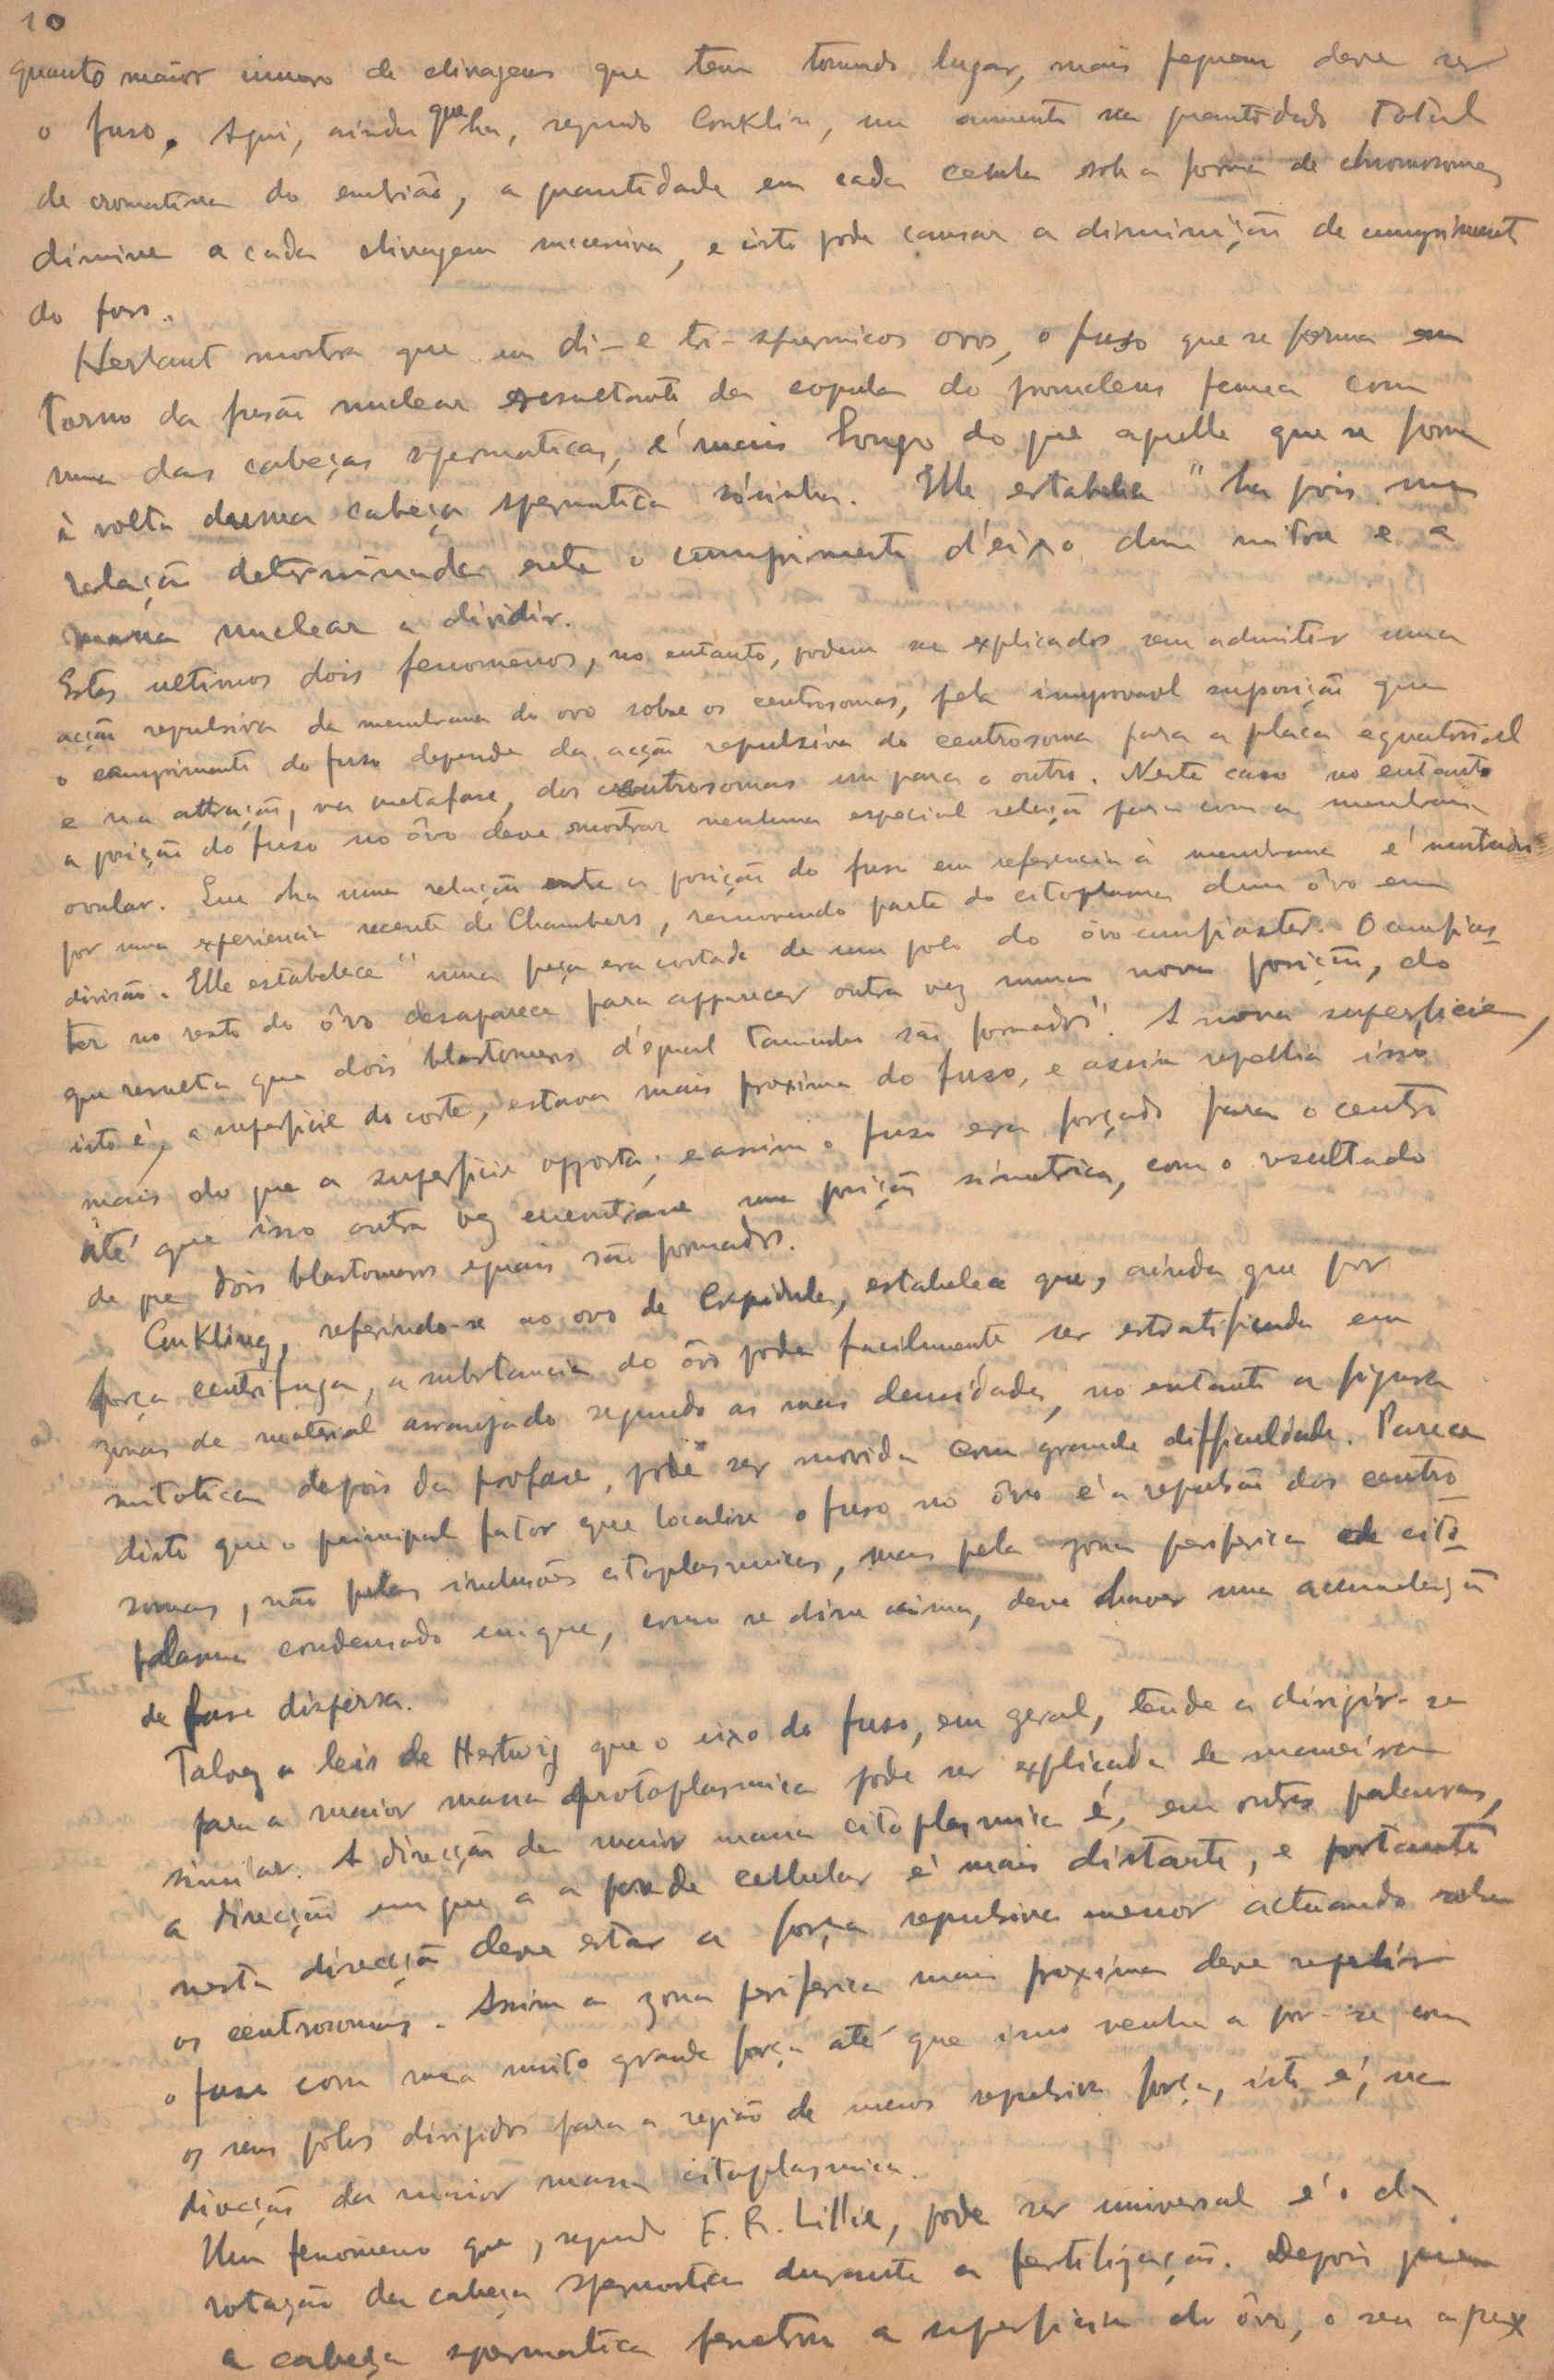 10
quanto maior numero de clivagens que tem tomado lugar, mais pequeno deve ser
o fuso. Aqui, ainda que ha, segundo Conklin, um aumento na quantidade total
de cromatina do embrião, a quantidade em cada celula sob a forma de chromosomas
diminue a cada clivagem sucessiva, e isto pode causar a diminuição de cumprimento
do fuso.
Herlant mostra que em di- e tri-spermicos ovos, o fuso que se forma em
torno da fusão nuclear resultante da copula do pronucleus femea com
uma das cabeças spermaticas, é mais longo do que aquelle que se forma
à volta duma cabeça spermatica sósinha. Elle estabelece "ha pois uma
relação determinada entre o cumprimento d'eixo dum mitose e a
massa nuclear a dividir.
Estes ultimos dois fenomenos, no entanto, podem ser explicados sem admitir uma
acção repulsiva da membrana do ovo sobre os centrosomas, pela improvavel suposição que
o cumprimento do fuso depende da acção repulsiva do centrosoma para a placa equatorial
e na attração, na metafase, dos centrosomas um para o outro. Neste caso no entanto
a posição do fuso no ôvo deve mostrar nenhuma especial relação para com a membrana
ovular. Que ha uma relação entre a posição do fuso em referencia à membrana é mostrado
por uma experiencia recente de Chambers, removendo parte do citoplasma dum ôvo em
divisão. Elle estabelece "uma peça era cortada de um polo do ôvo amfiaster. O amfias-
ter no resto do ôvo desaparece para apparecer outra vez numa nova posição, do
que resulta que dois blastomeros d'egual tamanho são formados". A nova superficie,
isto é, a superficie do corte, estava mais proxima do fuso, e assim repellia isso
mais do que a superficie opposta, e assim o fuso era forçado para o centro
até que isso outra vez encontrasse uma posição simetrica, com o resultado
de que dois blastomeros eguais são formados.
Conkling, referindo-se ao ovo de Crepidula, estabelece que, ainda que por
força centrifuga, a substancia do ôvo pode facilmente ser estratificada em
zonas de material arranjado segundo as suas densidades, no entanto a figura
mitotica depois da profase, pode ser movida com grande difficuldade. Parece
disto que o principal fator que localise o fuso no ôvo é a repulsão dos centro-
somas, não pelas inclusões citoplasmicas, mas pela zona periferica de cito-
plasma condensado em que, como se disse acima, deve haver uma acumulação
de fase dispersa.
Talvez a leis de Hertwig que o eixo do fuso, em geral, tende a dirigir-se
para a maior massa protoplasmica pode ser explicada de maneira
similar. A direcção da maior massa citoplasmica é, em outras palavras,
a direcção em que a a parede cellular é mais distante, e portanto
nesta direcção deve estar a força repulsiva menor actuando sobre
os centrosomas. Assim a zona periferica mais proxima deve repelir
o fuso com uma muito grande força até que isso venha a por-se com
os seus pólos dirigidos para a região de menos repulsiva força, isto é, na
direcção da maior massa citoplasmica.
Um fenomeno que, segundo F. R. Lillie, pode ser universal é o da
rotação da cabeça spermatica durante a fertilização. Depois que
a cabeça spermatica penetra a superficie do ôvo, o seu apex